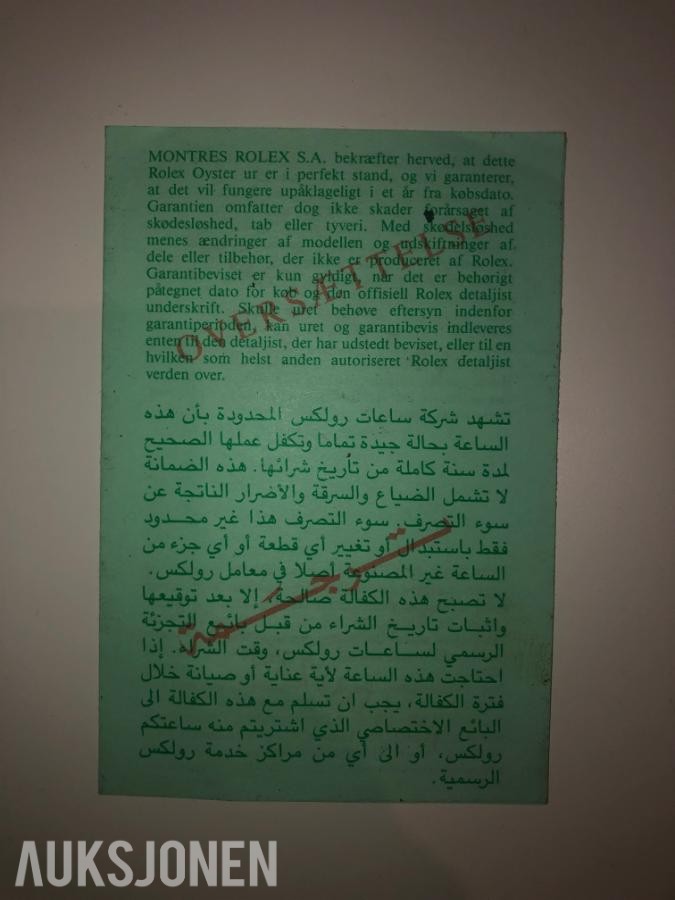 MONTRES ROLEX S.A. bekræfter herved, at dette
Rolex Oyster ur er i perfekt stand, og vi garanterer,
at det vil fungere upåklageligt i et år fra købsdato.
Garantien omfatter dog ikke skader forårsaget af
skødesløshed, tab eller tyveri. Med skødelsløshed
menes ændringer af modellen og udskiftninger af
dele eller tilbehør, der ikke er produceret af Rolex.
Garantibeviset er kun gyldigt, når det er behørigt
påtegnet dato for køb og den offisiell Rolex detaljist
underskrift. Skulle uret behøve eftersyn indenfor
garantiperioden, kan uret og garantibevis indleveres
enten til den detaljist, der har udstedt beviset, eller til en
hvilken som helst anden autoriseret Rolex detaljist
verden over.
OVERSÆTTELSE
تشهد شركة ساعات رولكس المحدودة بأن هذه
الساعة بحالة جيدة تماما وتكفل عملها الصحيح
لمدة سنة كاملة من تأريخ شرائها. هذه الضمانة
لا تشمل الضياع والسرقة والأضرار الناتجة عن
سوء التصرف. سوء التصرف هذا غير محدود
فقط باستبدال أو تغيير أي قطعة أو أي جزء من
الساعة غير المصنوعة أصلا في معامل رولكس.
لا تصبح هذه الكفالة صالحة، إلا بعد توقيعها
واثبات تاريخ الشراء من قبل بائع التجزئة
الرسمي لساعات رولكس، وقت الشراء. إذا
احتاجت هذه الساعة لأية عناية أو صيانة خلال
فترة الكفالة، يجب ان تسلم مع هذه الكفالة الى
البائع الاختصاصي الذي اشتريتم منه ساعتكم
رولكس، أو الى أي من مراكز خدمة رولكس
الرسمية.
ترجمة
AUKSJONEN